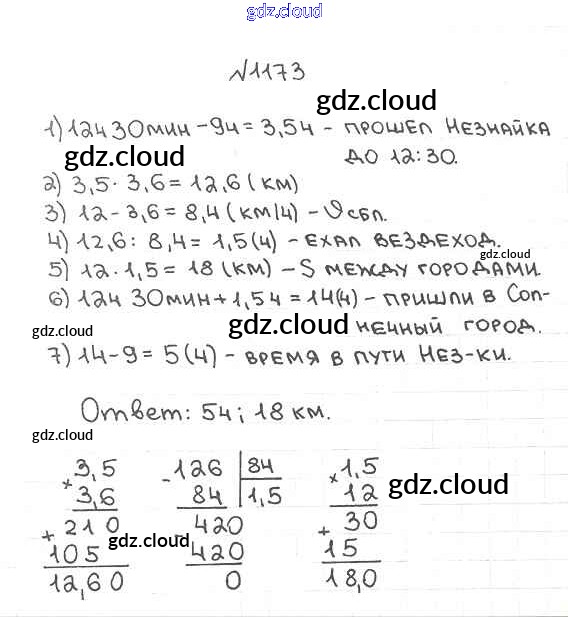 gdz.cloud
№1173
gdz.cloud
1) 12ч 30мин – 9ч = 3,5ч – прошел Незнайка
gdz.cloud
до 12:30.
2) 3,5 · 3,6 = 12,6 (км)
3) 12 – 3,6 = 8,4 (км/ч) – υсбл.
4) 12,6 : 8,4 = 1,5 (ч) – ехал вездеход.
gdz.cloud
5) 12 · 1,5 = 18 (км) – S между городами.
6) 12ч 30мин + 1,5ч = 14(ч) – пришли в Сол-
gdz.cloud gdz.cloud нечный город.
7) 14 – 9 = 5 (ч) – время в пути Нез-ки.
Ответ: 5ч; 18 км.
gdz.cloud
3,5
× 3,6
+ 210
105
12,60
gdz.cloud
126 | 84
– 84 | 1,5
420
– 420
0
1,5
× 12
+ 30
15
18,0
gdz.cloud
gdz.cloud